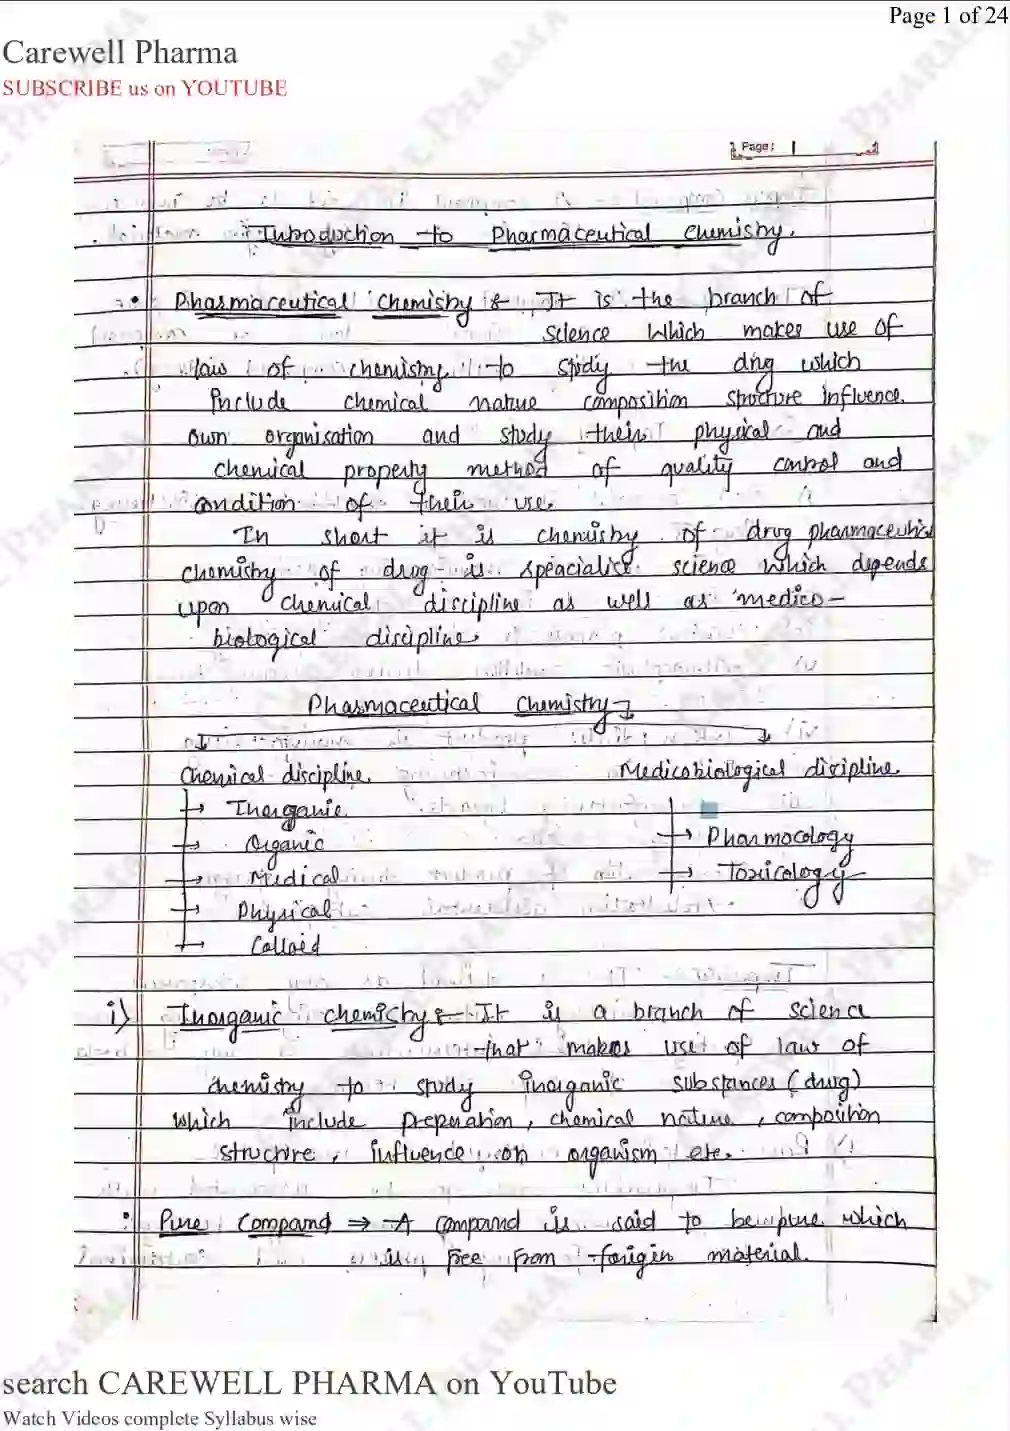 Page 1 of 24
Carewell Pharma
SUBSCRIBE us on YOUTUBE
Page: 1
Introduction to Pharmaceutical Chemistry.
Pharmaceutical Chemisty :- It is the branch of
science which makes use of
law of chemistry to study the drug which
include chemical nature composition structure influence.
own organisation and study their physical and
chemical property method of quality control and
condition of their use.
In short it is chemistry of drug pharmaceutical
chemistry of drug is speacialise science which depends
upon chemical discipline as well as medico-
biological discipline.
Pharmaceutical Chemistry
Chemical discipline. Medicobiological discipline.
→ Inorganic.
→ Organic → Pharmocology
→ Medical → Toxicology
→ Physical
→ Colloid
i) Inorganic chemistry :- It is a branch of science
that makes use of law of
chemistry to study inorganic substances (drug)
which include preperation, chemical nature, composition
structure, influence on organism etc.
Pure Compound ⇒ A compound is said to be pure which
is free from foreign material.
search CAREWELL PHARMA on YouTube
Watch Videos complete Syllabus wise